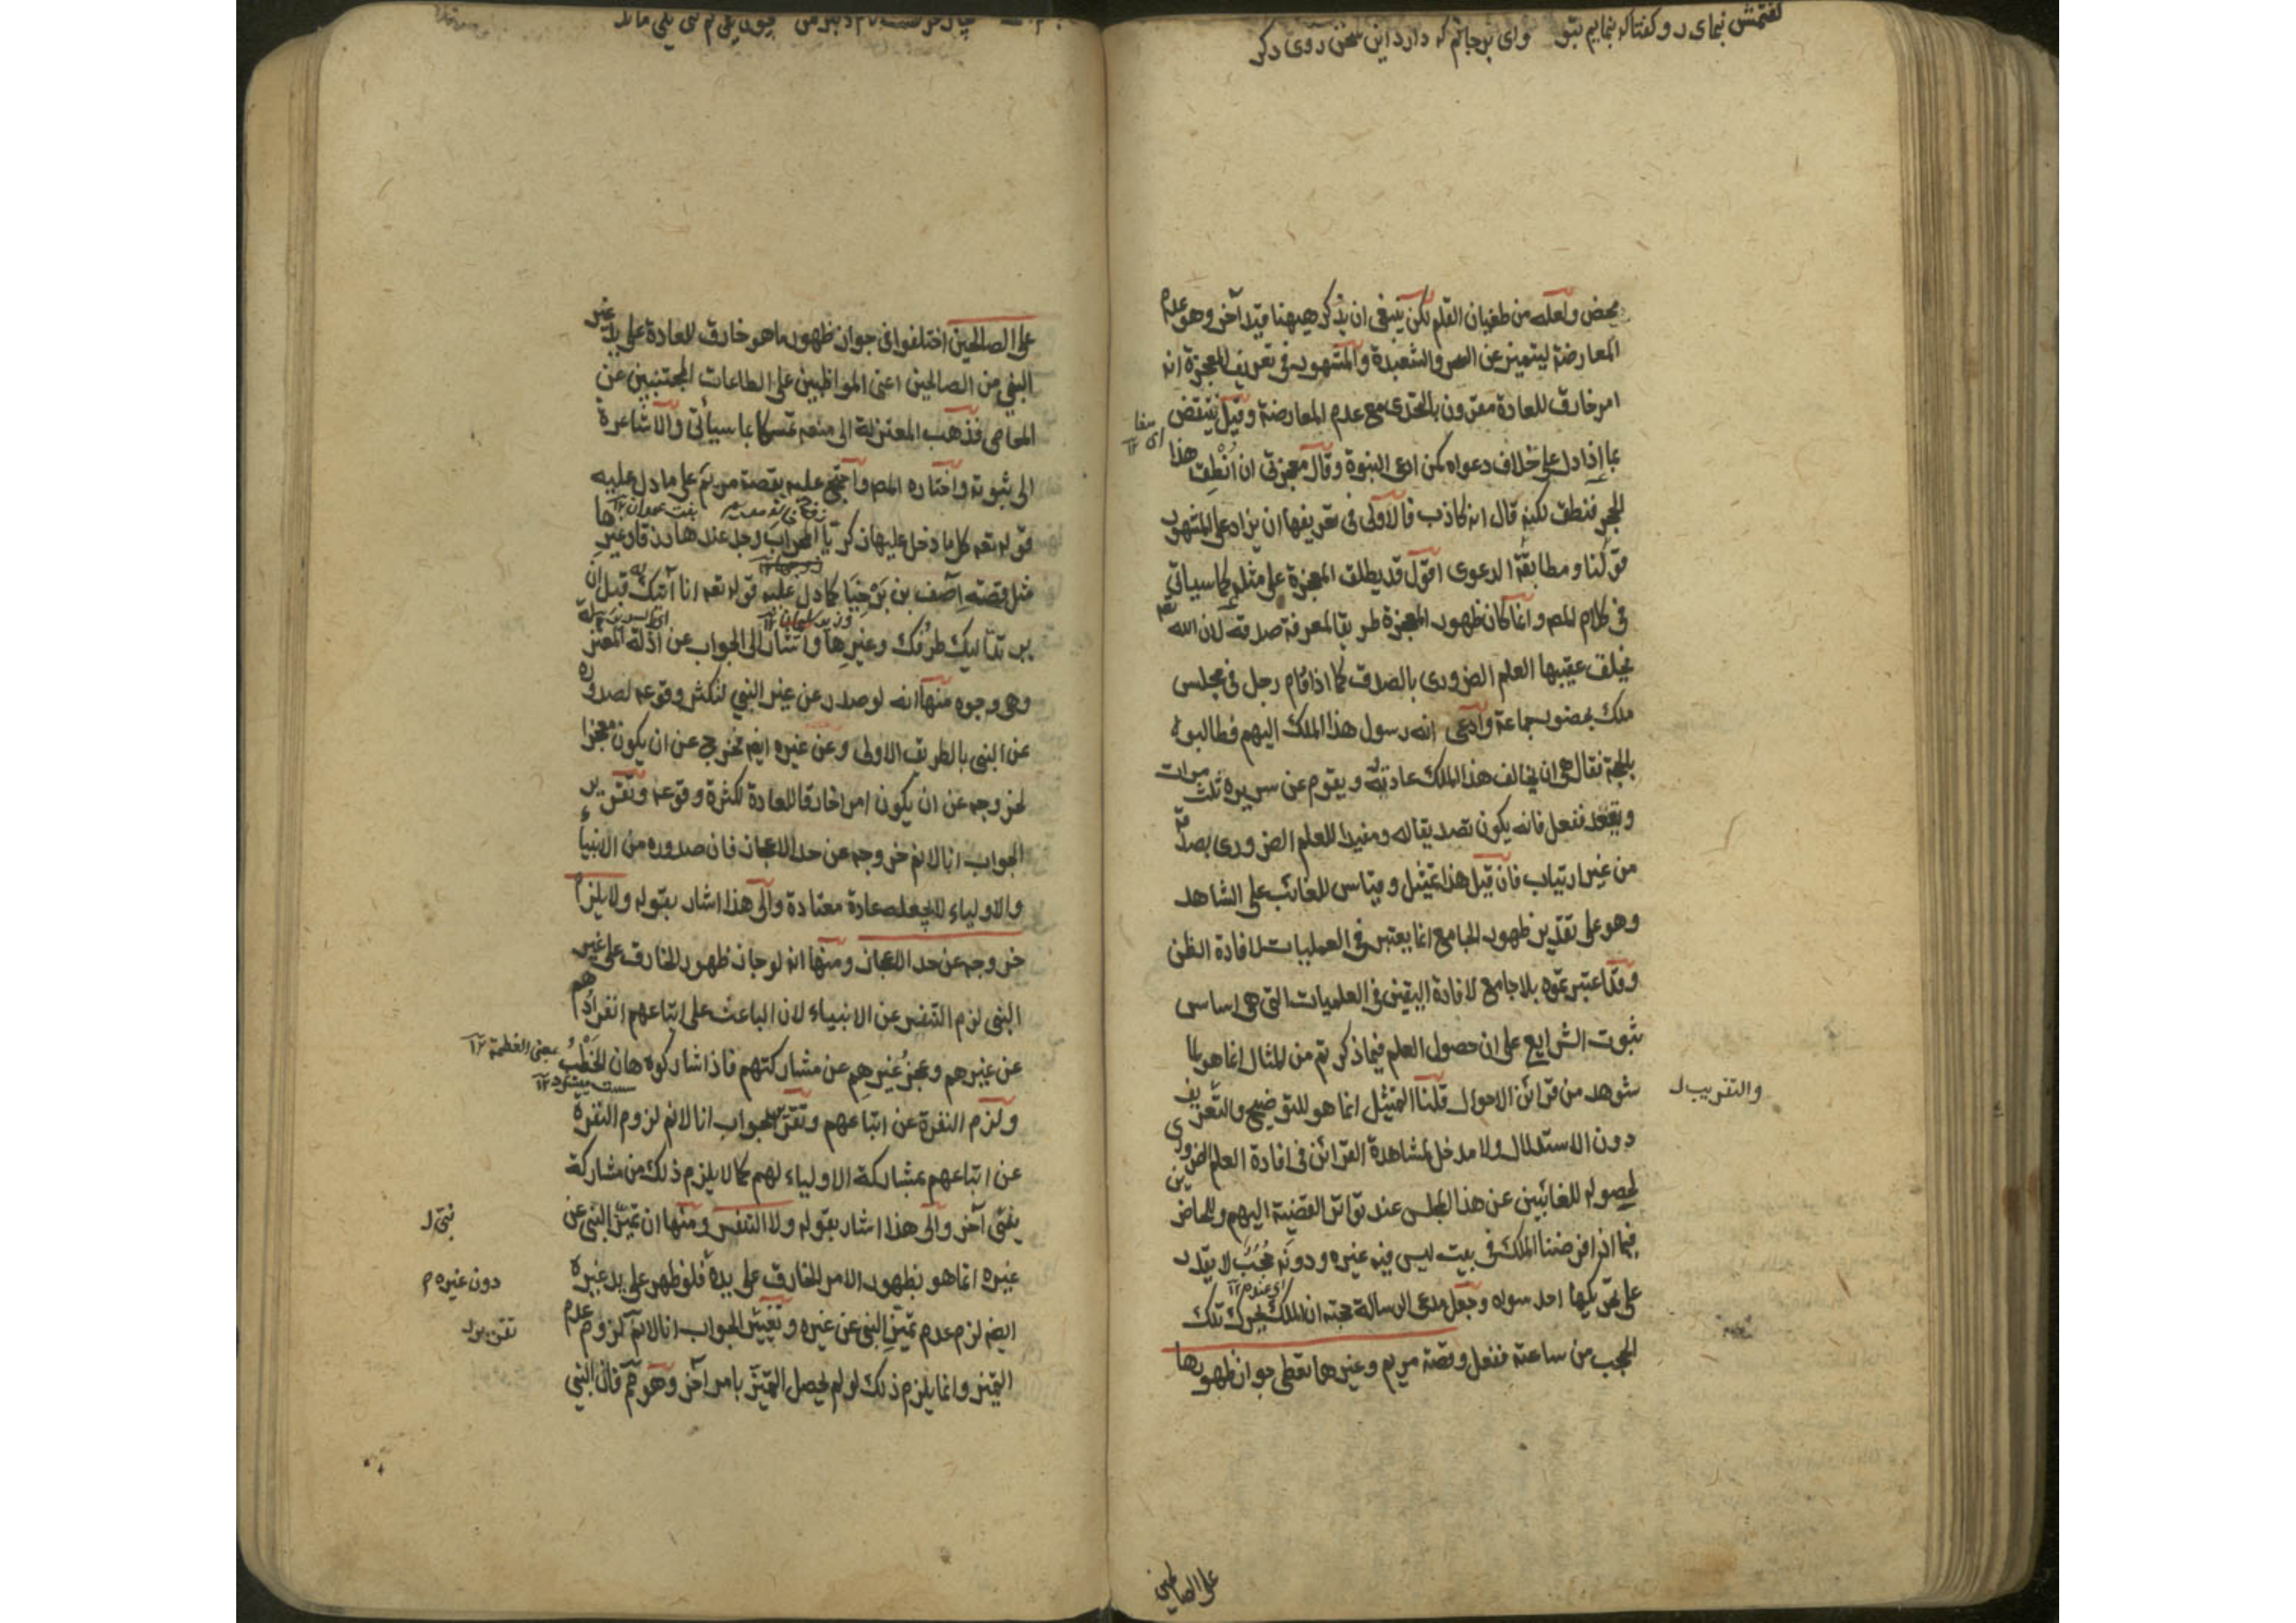 گفتمش بنمای رو گفتا که بنمایم بتو وای بر جانم که دارد این سخن روی دگر
محض ولعله من طغيان القلم لكن ينبغى ان يذكر ههنا قيد آخر وهو عدم
المعارضة ليتميز عن السحر والشعبدة والمشهور فى تعريف المعجزة انه
امر خارق للعادة مقرون بالتحدى مع عدم المعارضة وقيل ينتقض
بما إذا دل على خلاف دعواه كمن ادعى النبوة وقال معجزتى ان أنطق هذا
الحجر فنطق لكنه قال انه كاذب فالأولى فى تعريفها ان يزاد على المشهور
قولنا ومطابقة الدعوى اقول قد يطلق المعجزة على مثله كما سيأتى
فى كلام المص وانما كان ظهور المعجزة طريقا لمعرفة صدقه لان الله تعه
يخلق عقيبها العلم الضرورى بالصدق كما اذا قام رجل فى مجلس
ملك بحضور جماعة وادعى انه رسول هذا الملك اليهم فطالبوه
بالحجة فقال هى ان يخالف هذا الملك عادته ويقوم عن سريره ثلث مرات
ويقعد ففعل فانه يكون تصديقا له ومفيدا للعلم الضرورى بصدقه
من غير ارتياب فان قيل هذا تمثيل وقياس للغائب على الشاهد
وهو على تقدير ظهور الجامع انما يعتبر فى العمليات لافادة الظن
وقد اعتبرتموه بلا جامع لافادة اليقين فى العلميات التى هى اساس
ثبوت الشرايع على ان حصول العلم فيما ذكرتم من المثال انما هو لما
شوهد من قرائن الاحوال قلنا التمثيل انما هو للتوضيح والتعريف
والتقريب ل
دون الاستدلال ولا مدخل لمشاهدة القرائن فى افادة العلم الضرورى
لحصوله للغائبين عن هذا المجلس عند تواتر القضية اليهم وللحاضرين
فيما اذا فرضنا الملك فى بيت ليس فيه غيره ودونه حجب لا يقدر
على تحريكها احد سواه وجعل مدعى الرسالة حجته ان الملك يحرك تلك
الحجب من ساعته ففعل وقصة مريم وغيرها تعطى جواز ظهورها
على الصالحين
على الصالحين اختلفوا فى جواز ظهور ما هو خارق للعادة على يد غير
النبى من الصالحين اعنى المواظبين على الطاعات المجتنبين عن
المعاصى فذهب المعتزلة الى منعه تمسكا بما سيأتى والاشاعرة
الى ثبوته واختاره المص واحتج عليه بقصة مريم على ما دل عليه
بنت عمران ١٢
قوله تعه كلما دخل عليها زكريا المحراب وجد عندها رزقا وغيرها
مثل قصة آصف بن برخيا كما دل عليه قوله تعه انا آتيك به قبل ان
وزير سليمان ١٢
يرتد اليك طرفك وغيرها واشار الى الجواب عن ادلة المعتزلة
وهى وجوه منها انه لو صدر عن غير النبي لتكثر وقوعه لصدوره
عن النبى بالطريق الاولى وعن غيره ايضه فخرج عن ان يكون معجزا
لخروجه عن ان يكون امرا خارقا للعادة لكثرة وقوعه وتقرير
الجواب انا لانم خروجه عن حد الاعجاز فان صدوره من الانبياء
والاولياء لا يجعله عادة معتادة والى هذا اشار بقوله ولا يلزم
خروجه عن حد الاعجاز ومنها انه لو جاز ظهور الخارق على غير
النبى لزم التنفير عن الانبياء لان الباعث على اتباعهم انفرادهم
عن غيرهم وعجز غيرهم عن مشاركتهم فاذا شاركوه هان الخطب
بمعنى العظمة ١٢
ولزم النفرة عن اتباعهم وتقرير الجواب انا لانم لزوم النفرة
عن اتباعهم بمشاركة الاولياء لهم كما لا يلزم ذلك من مشاركة
نبى آخر والى هذا اشار بقوله ولا التنفير ومنها ان تميز النبى عن
نبى ل
غيره انما هو بظهور الامر الخارق على يده فلو ظهر على يد غيره
دون غيره م
ايضه لزم عدم تميز النبى عن غيره وتغيير الجواب انا لانم لزوم عدم
تقرير ل
التميز وانما يلزم ذلك لو لم يحصل التميز بامر آخر وهو ثم فان النبى